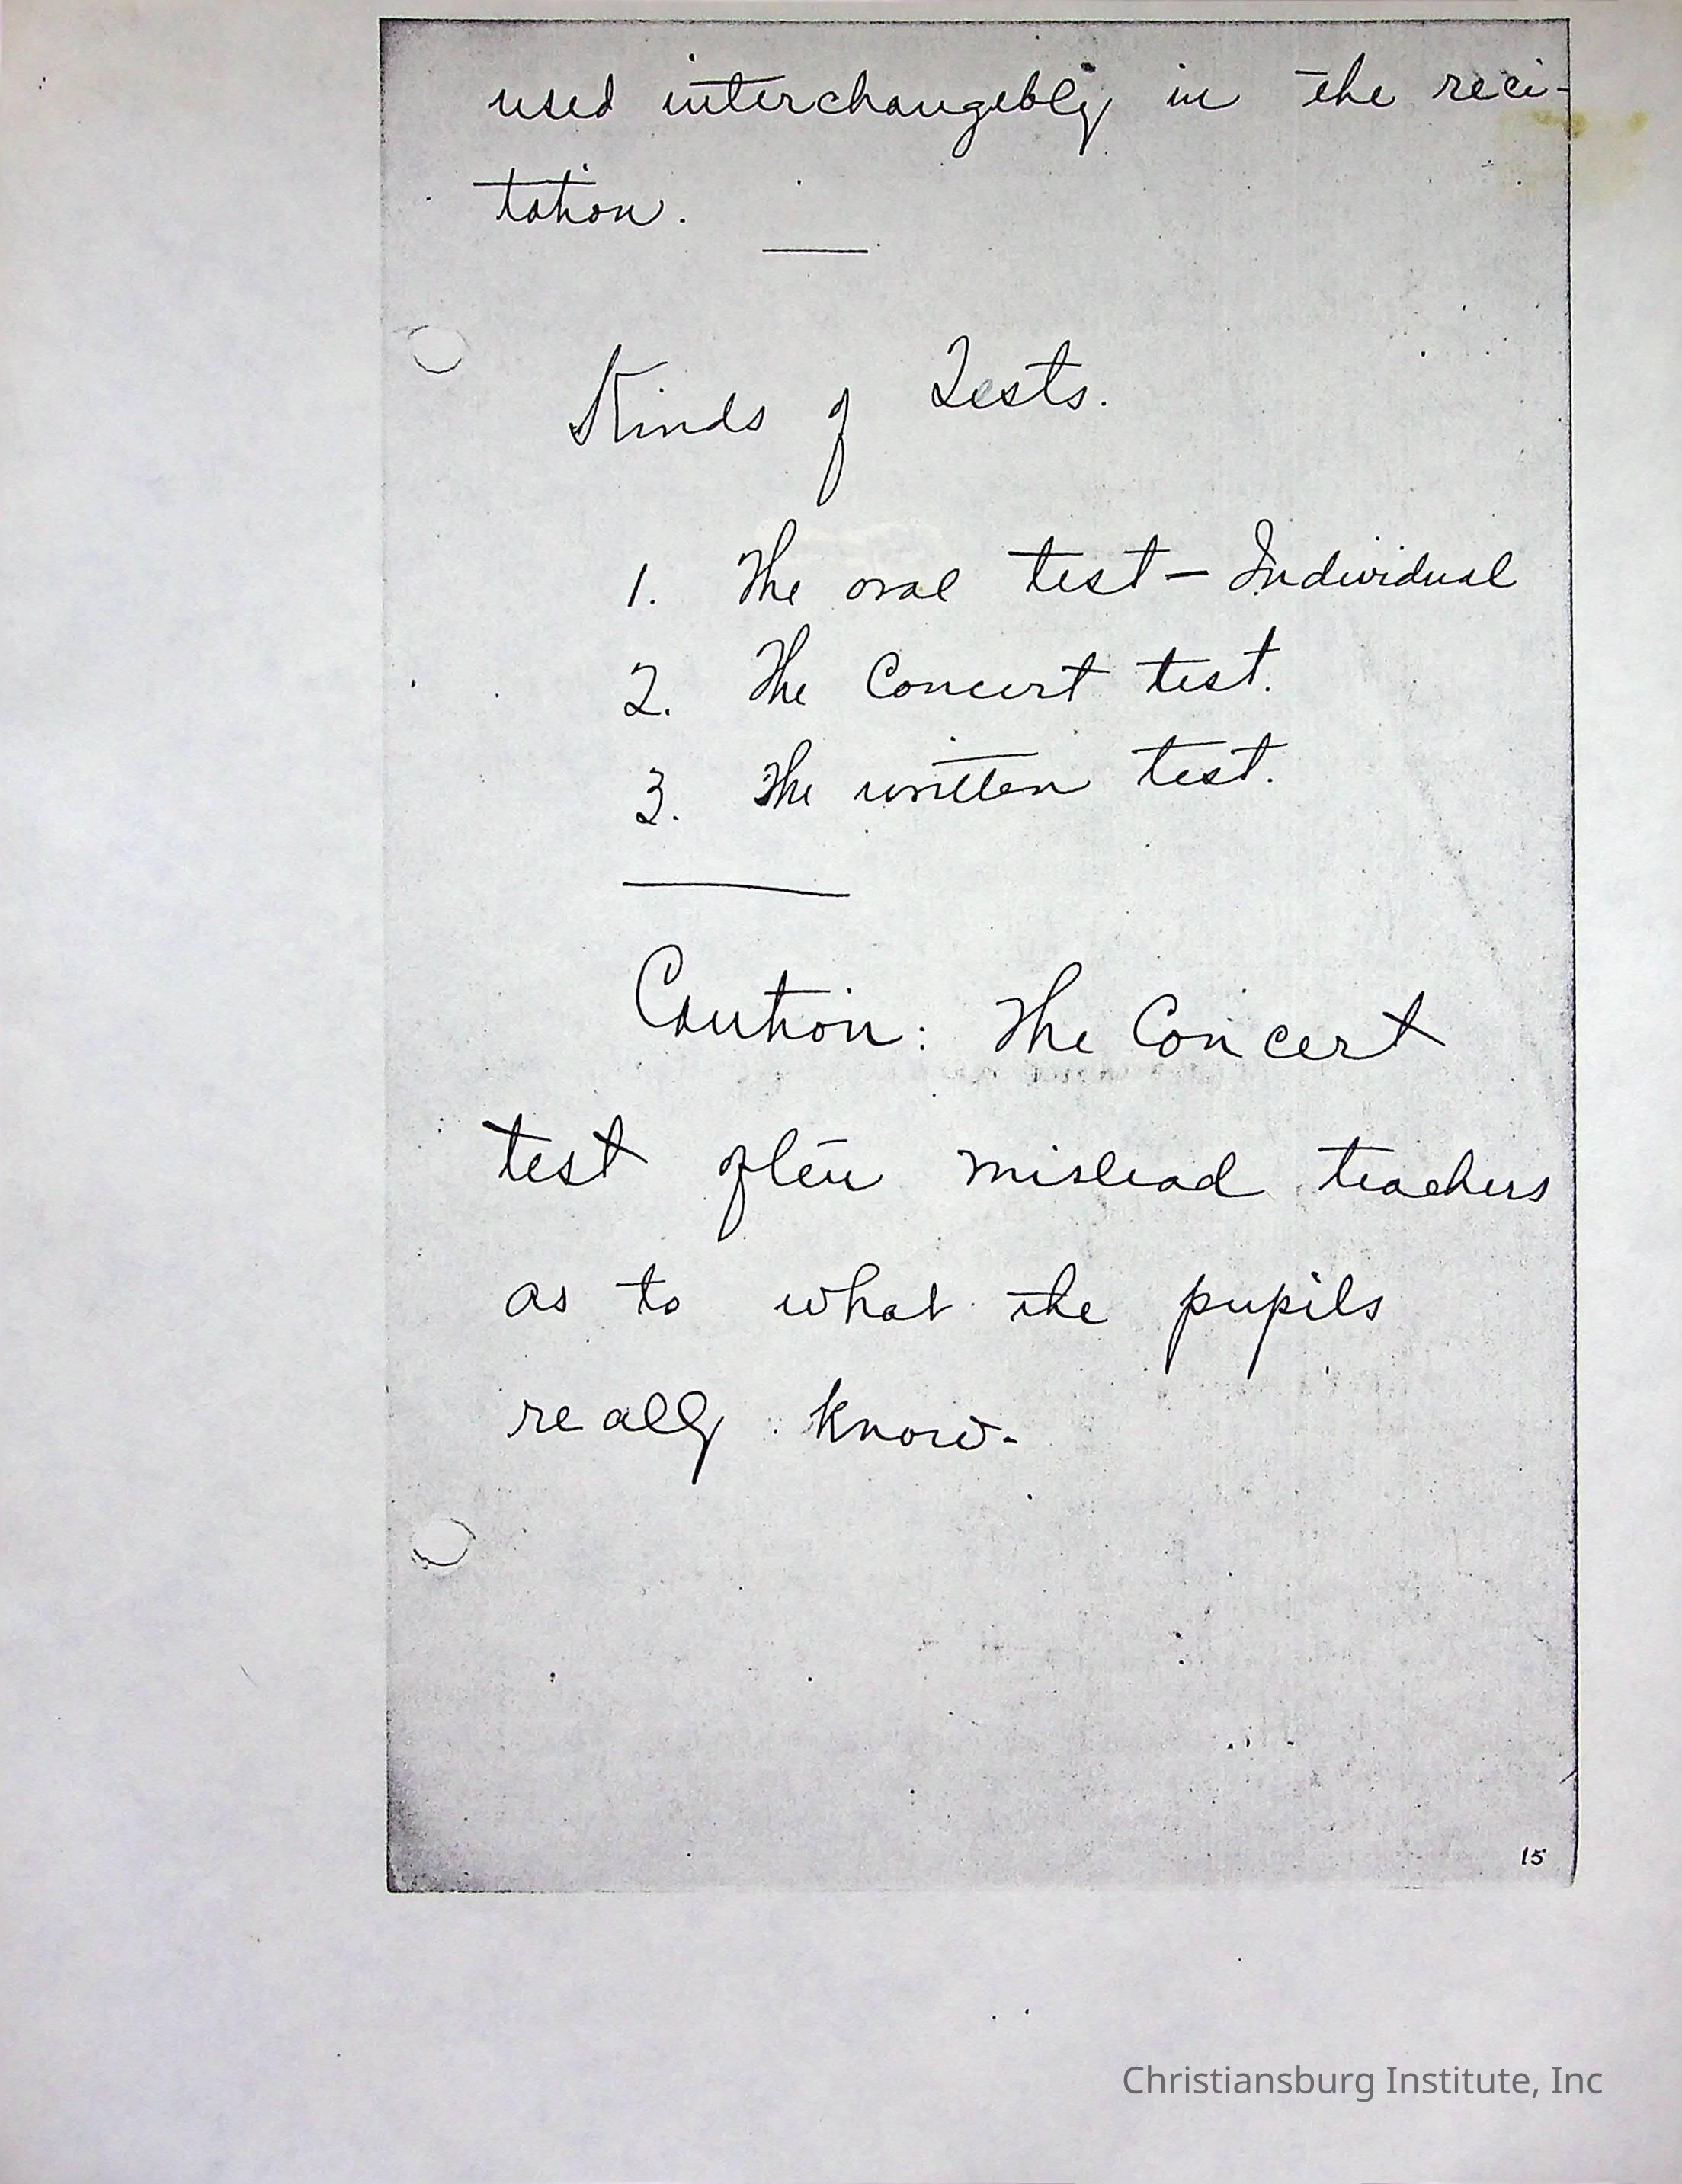 used interchangebly in the reci-
tation.
Kinds of Tests.
1. The oral test — Individual
2. The Concert test.
3. The written test.
Caution: The Concert
test often mislead teachers
as to what the pupils
really know.
15
Christiansburg Institute, Inc